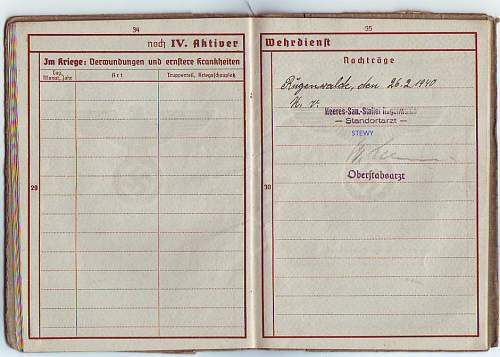 34
noch IV. Aktiver
Im Kriege: Verwundungen und ernstere Krankheiten
Tag, Monat, Jahr
Art
Truppenteil, Kriegsschauplatz
29
35
Wehrdienst
Nachträge
Rügenwalde, den 26.2.1940
K. v.
Heeres-San.-Staffel Rügenwalde
— Standortarzt —
STEWY
Oberstabsarzt
30